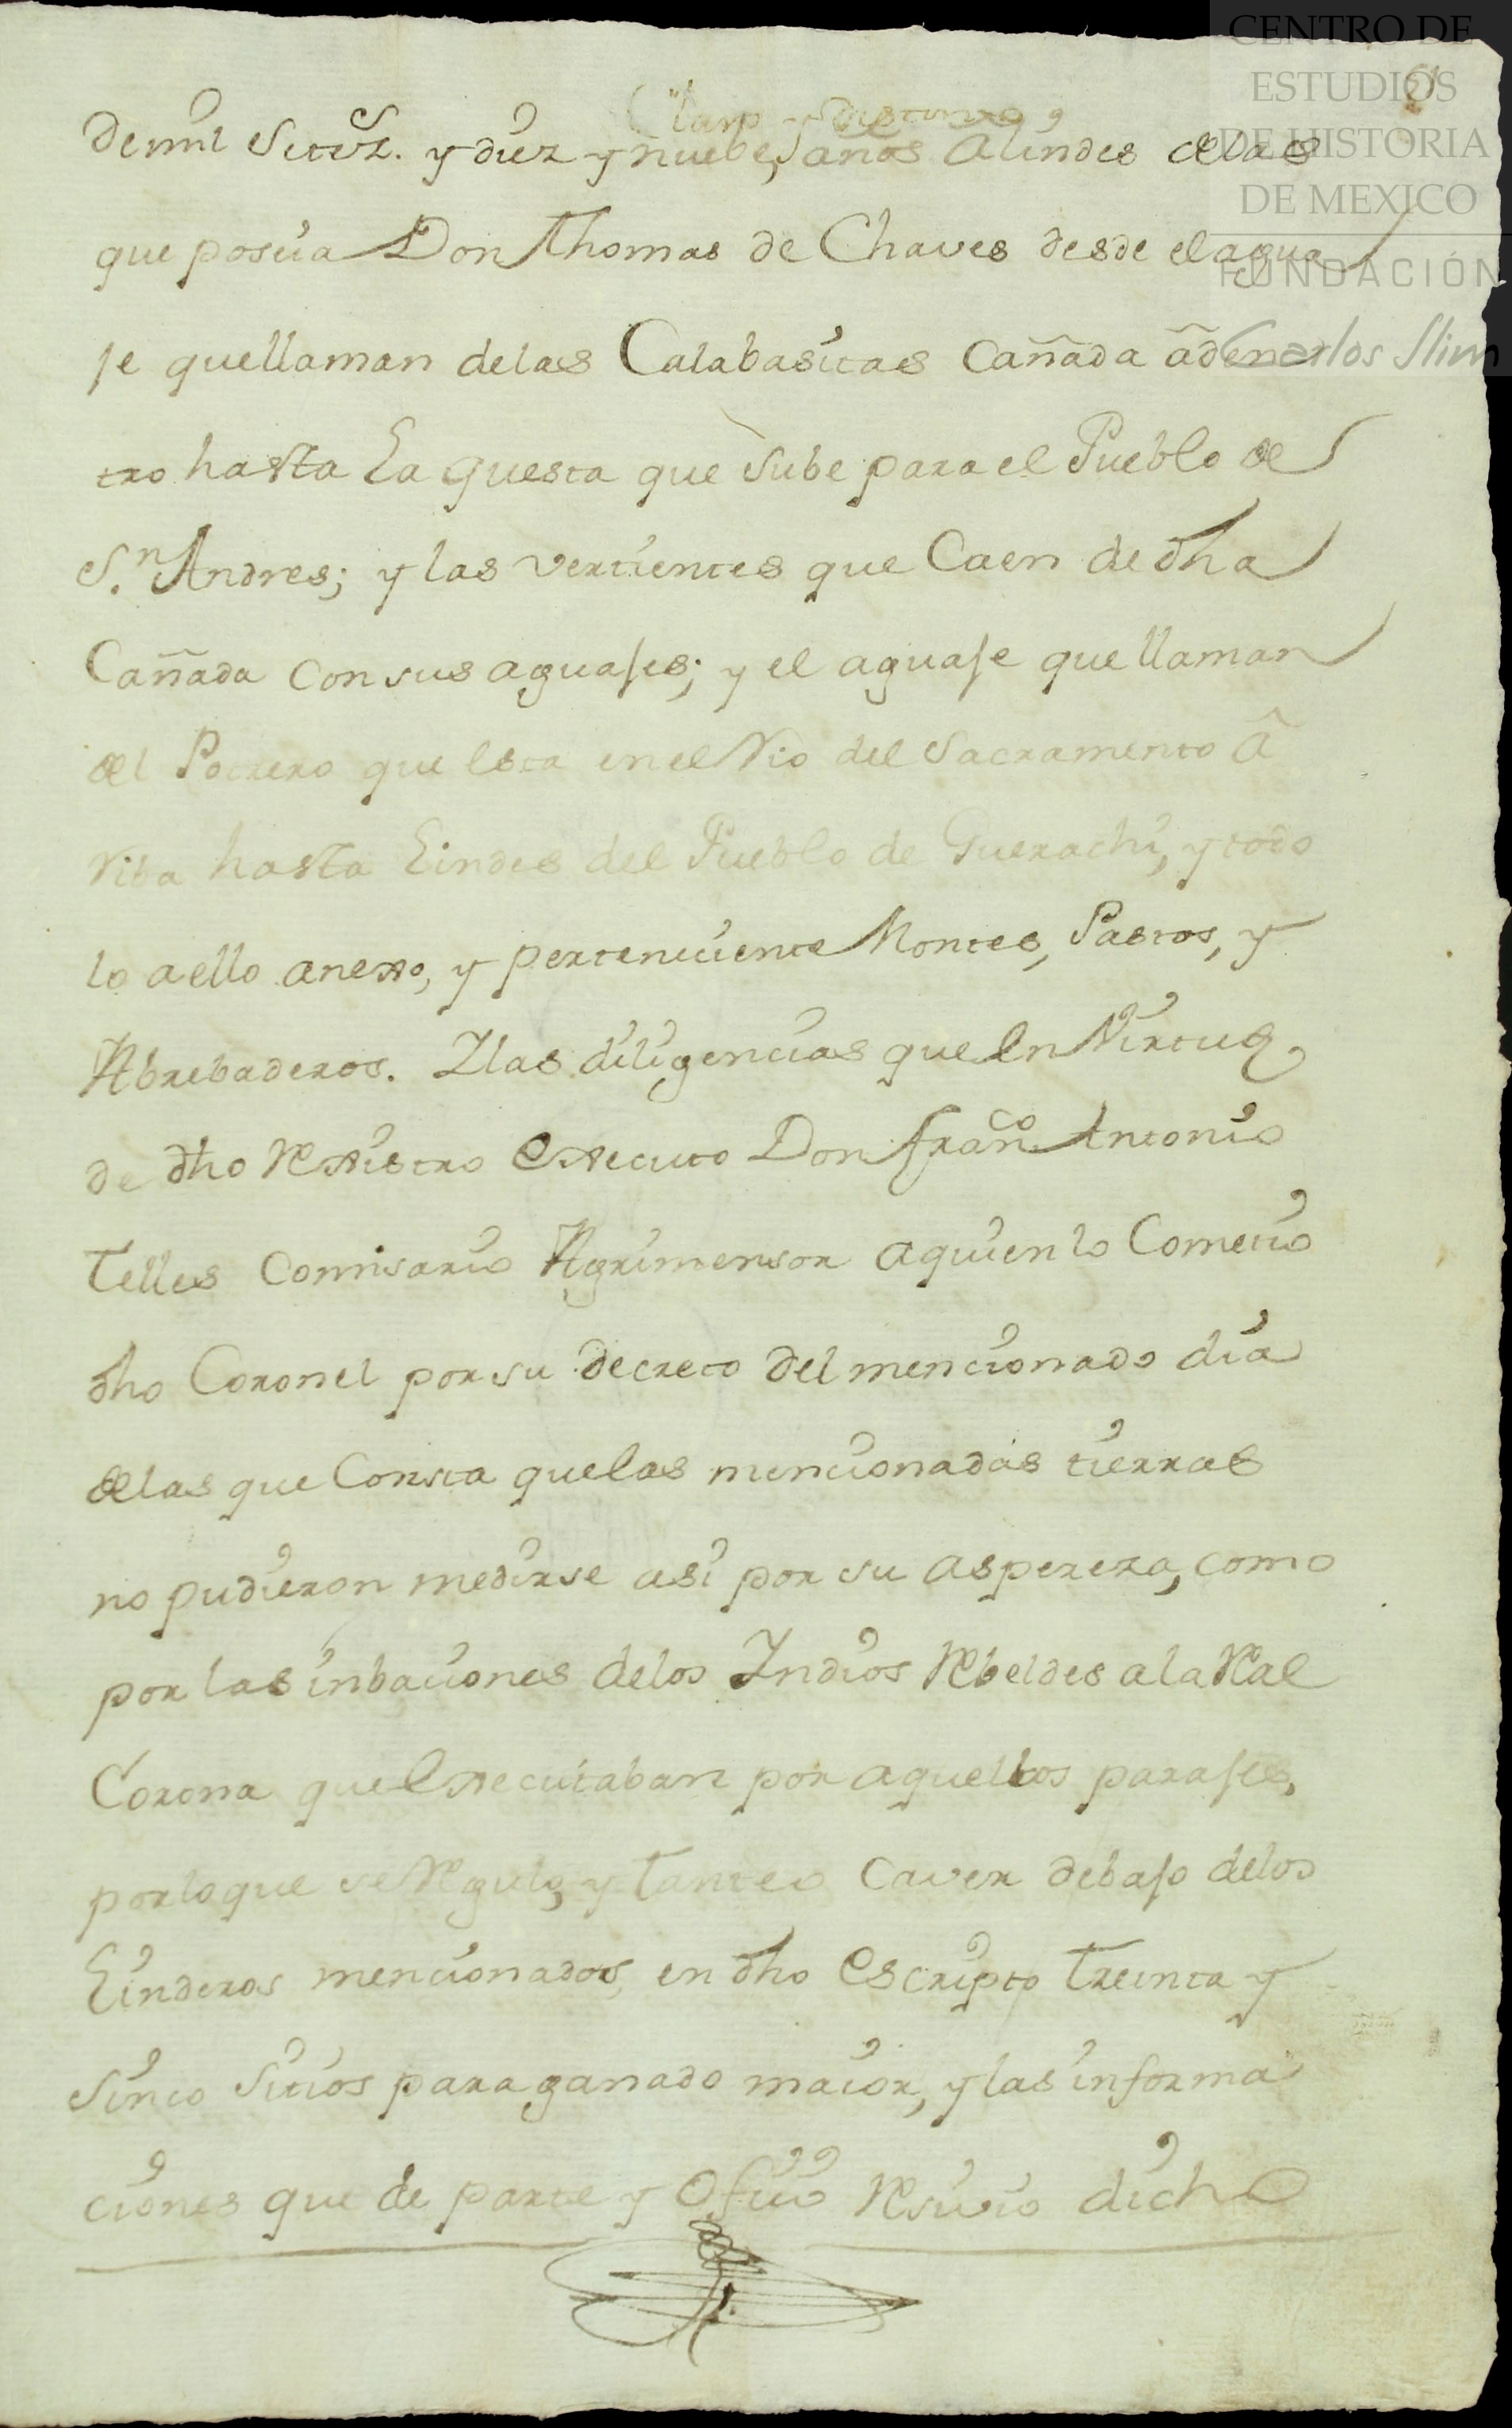 CENTRO DE
ESTUDIOS
DE HISTORIA
DE MEXICO
FUNDACIÓN
Carlos Slim
de mil Setez. y diez y nuebe, años a lindes de las
que poseia Don Thomas de Chaves desde el agua
je que llaman de las Calabasitas Cañada âden
tro hasta La questa que sube para el Pueblo de
S.n Andres; y las vertientes que Caen de dha
Cañada con sus aguajes; y el aguaje que llaman
del Potrero que esta en el Rio del Sacramento â
riba hasta Lindes del Pueblo de Guerachi, y todo
lo a ello anexo, y perteneciente Montes, Pastos, y
Abrebaderos. Y las diligencias que en Virtud
de dho Rexistro executo Don Franco Antonio
Telles Comisario Agrimensor a quien lo Cometio
dho Coronel por su decreto del mencionado dia
de las que Consta que las mencionadas tierras
no pudieron medirse asi por su aspereza, como
por las inbaciones de los Indios Rebeldes a la Real
Corona que executaban por aquellos parajes,
por lo que se Regulo, y tanteo caver debajo de los
Linderos mencionados, en dho escripto treinta y
sinco sitios para ganado maior, y las informa
ciones que de parte y Oficio Resivio dicho